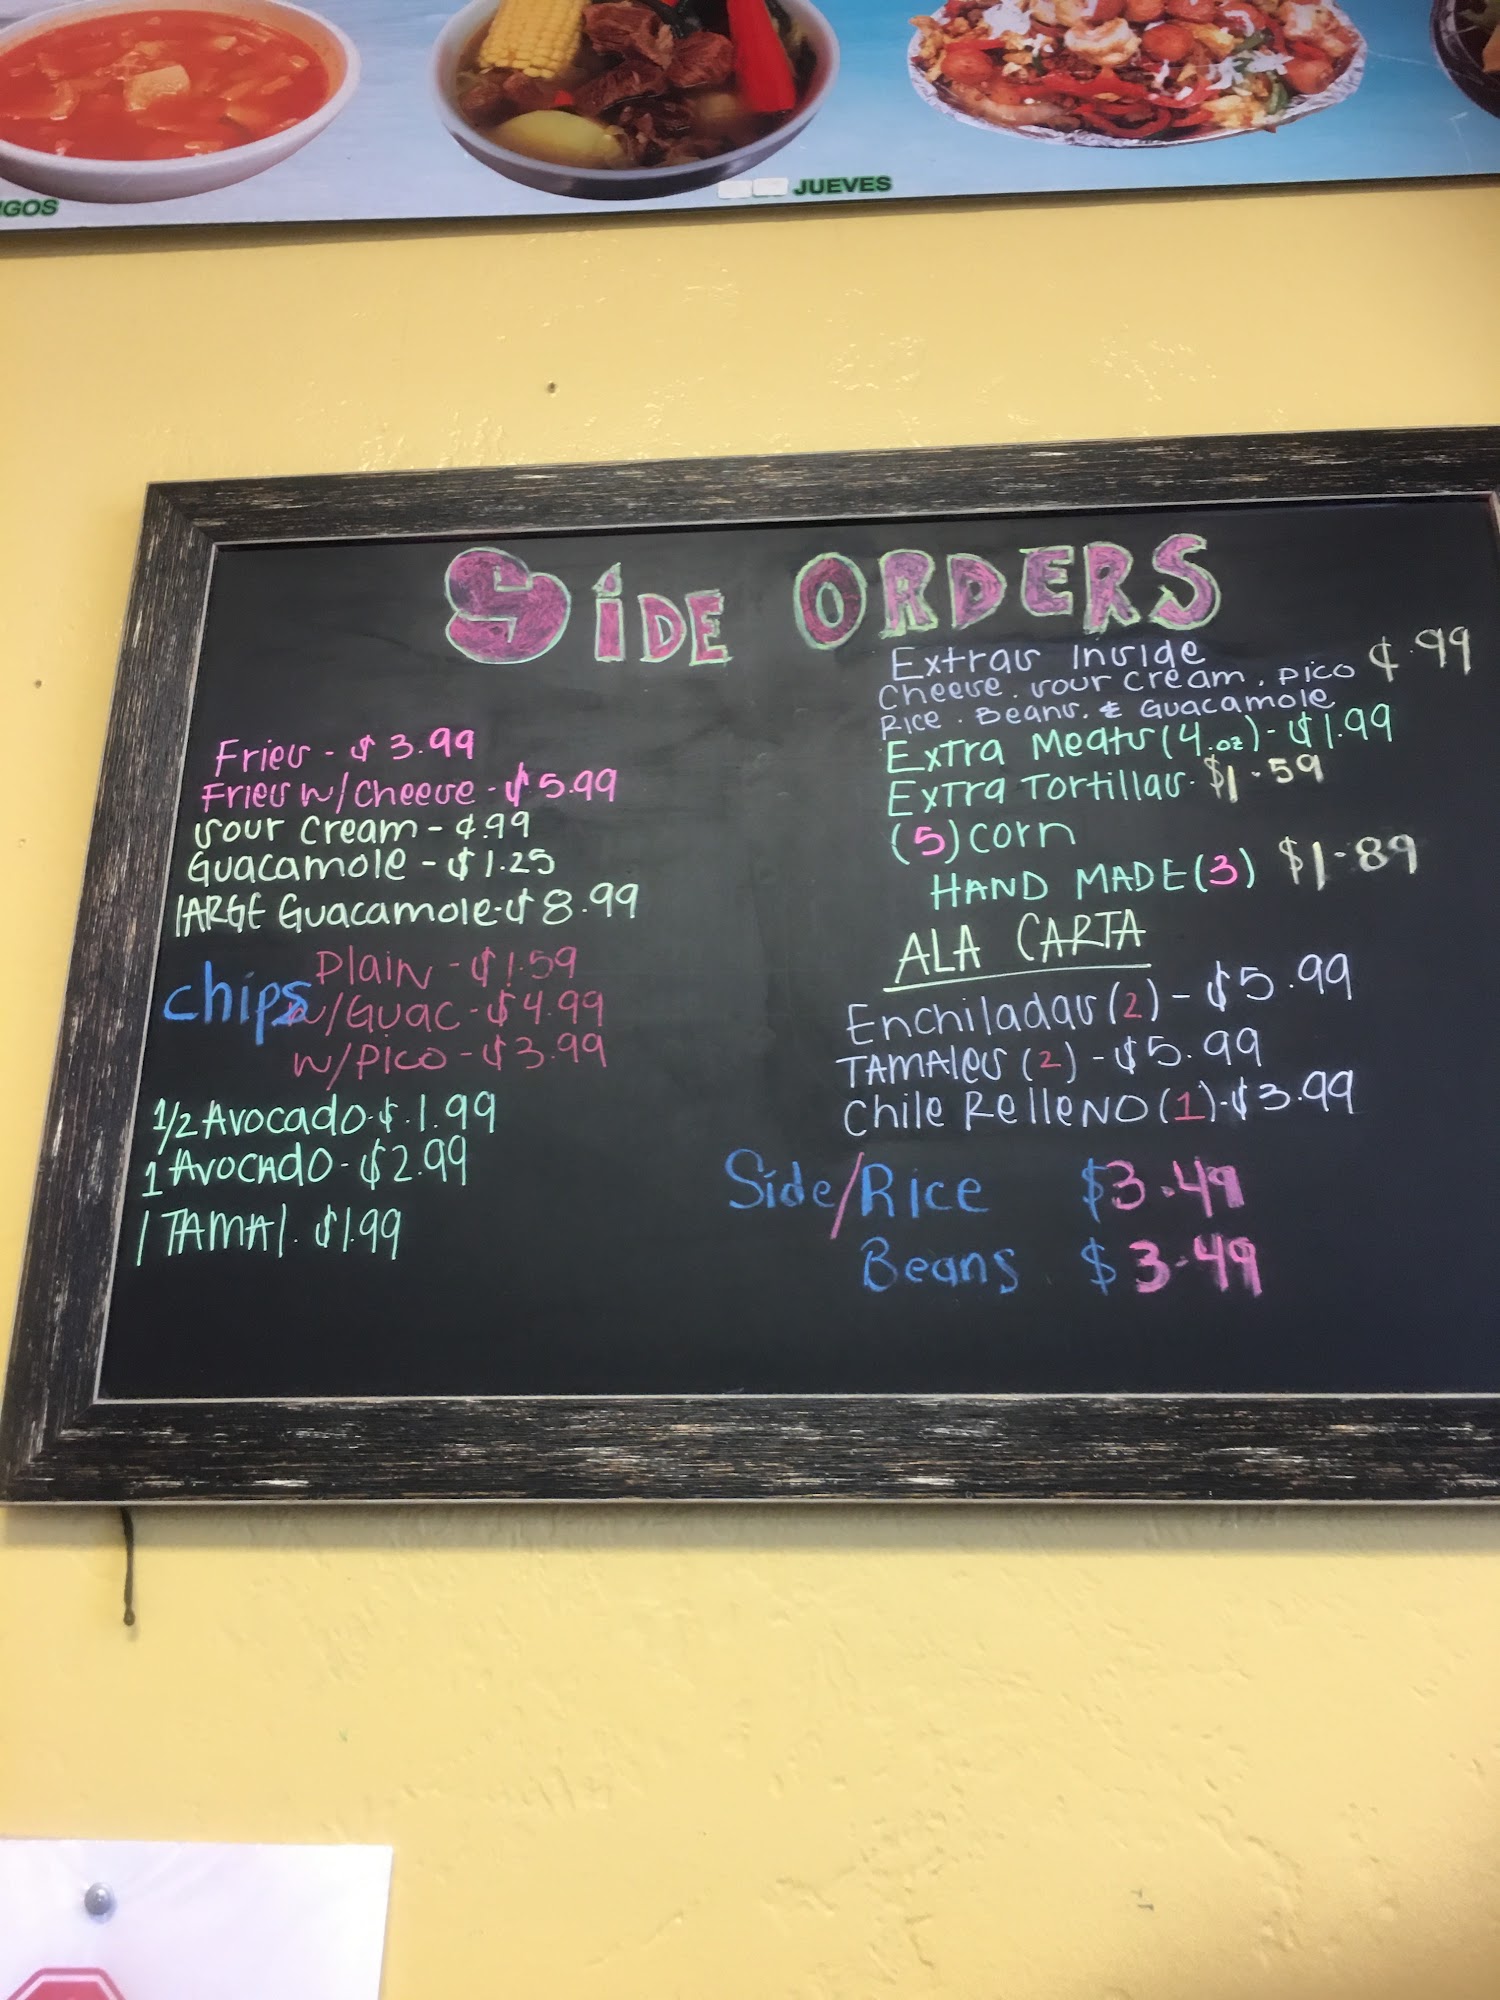 JUEVES
SiDE ORDERS
Fries - $ 3.99
Fries w/Cheese - $ 5.99
Sour Cream - ¢.99
Guacamole - $ 1.25
LARGE Guacamole - $ 8.99
Chips Plain - $1.59
w/Guac - $4.99
w/Pico - $3.99
1/2 Avocado - $.1.99
1 Avocado - $2.99
1 TAMAl. $1.99
Extras Inside
Cheese. Sour Cream. Pico ¢.99
Rice. Beans. & Guacamole
Extra Meats (4.oz) - $1.99
Extra Tortillas. $1.59
(5) corn
HAND MADE (3) $1.89
ALA CARTA
Enchiladas (2) - $5.99
TAMAles (2) - $5.99
Chile RelleNO (1) - $3.99
Side/Rice $3.49
Beans $3.49